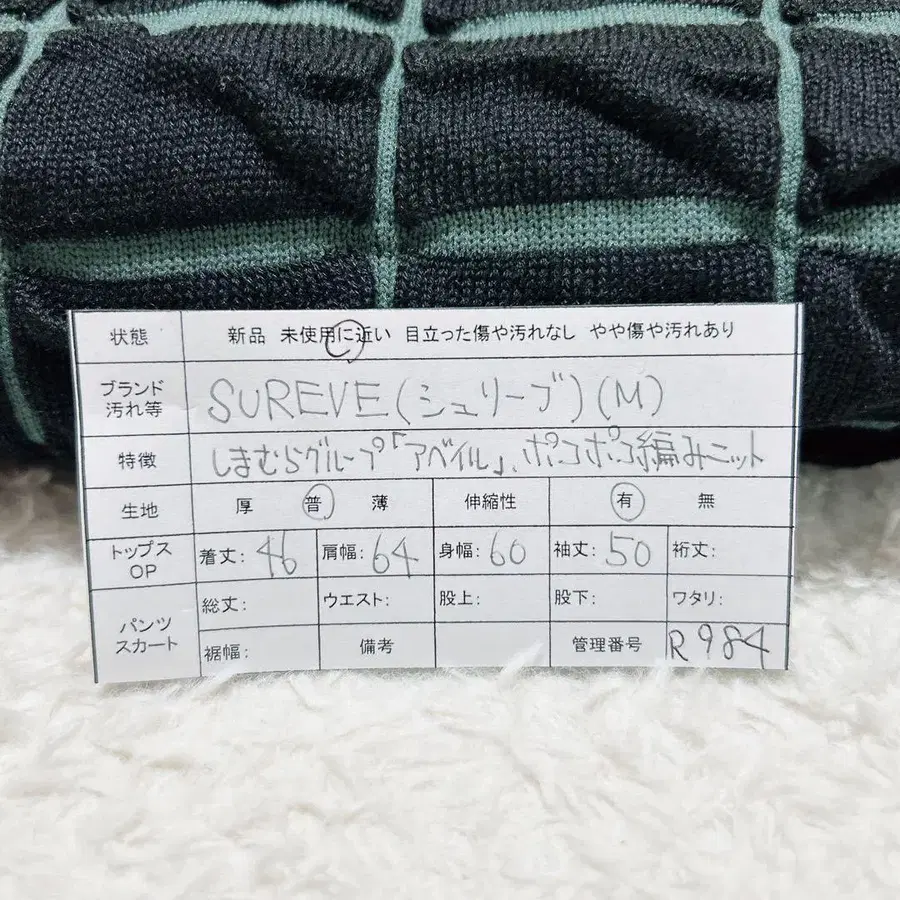 状態 新品 未使用に近い 目立った傷や汚れなし やや傷や汚れあり
ブランド
汚れ等 SUREVE(シュリーブ)(M)
特徴 しまむらグループ「アベイル」、ポコポコ編みニット
生地 厚 普 薄 伸縮性 有 無
トップス
OP 着丈:46 肩幅:64 身幅:60 袖丈:50 裄丈:
パンツ
スカート 総丈: ウエスト: 股上: 股下: ワタリ:
裾幅: 備考 管理番号 R984